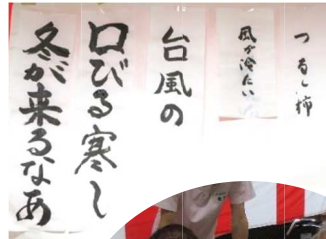 つるし柿
風が冷たい
台風の
口びる寒し
冬が来るなあ